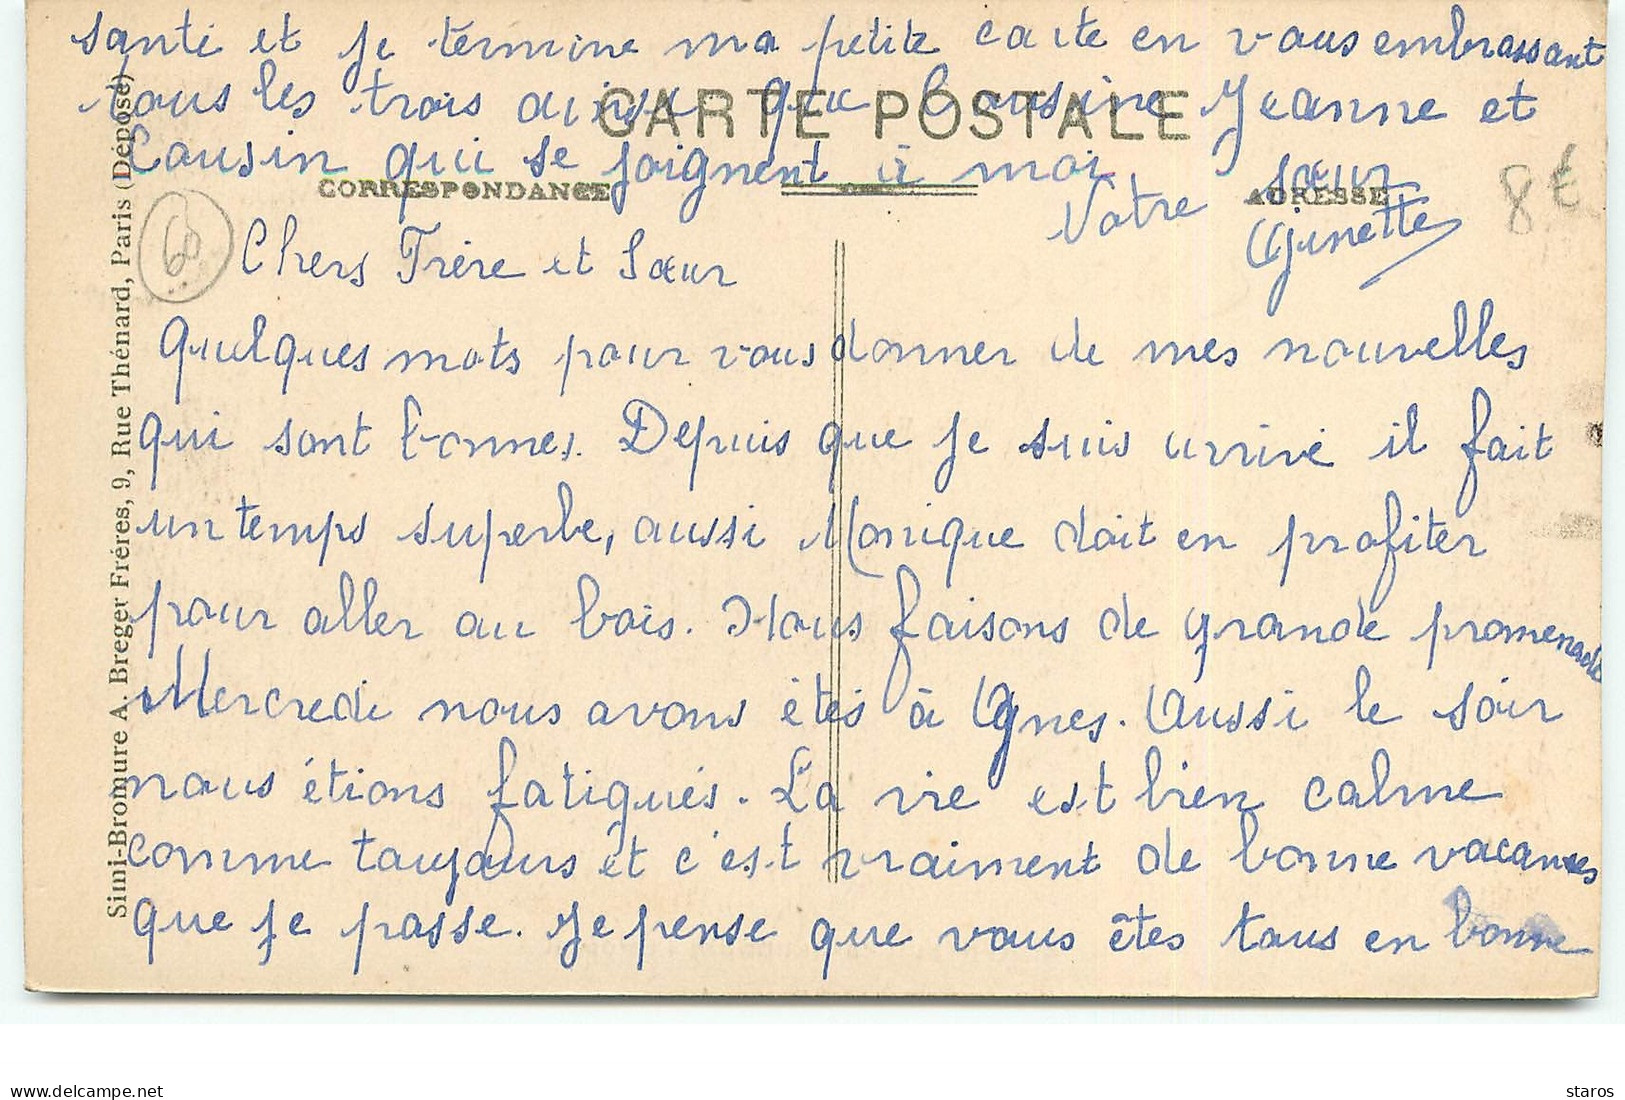 santé et je termine ma petite carte en vous embrassant
tous les trois ainsi que Cousine Jeanne et
Cousin qui se joignent à moi
Votre sœur
Ginette
CARTE POSTALE
CORRESPONDANCE
ADRESSE
8€
60
Chers Frère et Sœur
Quelques mots pour vous donner de mes nouvelles
qui sont bonnes. Depuis que je suis arrivé il fait
un temps superbe, aussi Monique doit en profiter
pour aller au bois. Nous faisons de grande promenade
Mercredi nous avons étés à Ognes. Aussi le soir
nous étions fatigués. La vie est bien calme
comme toujours et c'est vraiment de bonne vacances
que je passe. Je pense que vous êtes tous en bonne
Simi-Bromure A. Breger Frères, 9, Rue Thénard, Paris (Déposé)
www.delcampe.net
staros